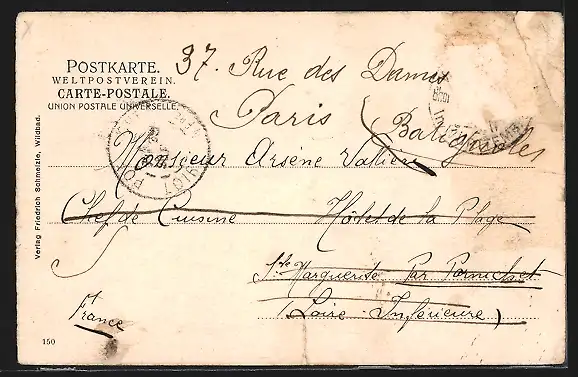 POSTKARTE.
WELTPOSTVEREIN.
CARTE-POSTALE.
UNION POSTALE UNIVERSELLE.
37. Rue des Dames
Paris (Batignolles
Monsieur Arsène Vallière
Chef de Cuisine Hôtel de la Plage
Ste Marguerite Par Pornichet
(Loire-Inférieure)
France
Verlag Friedrich Schmelzle, Wildbad.
150